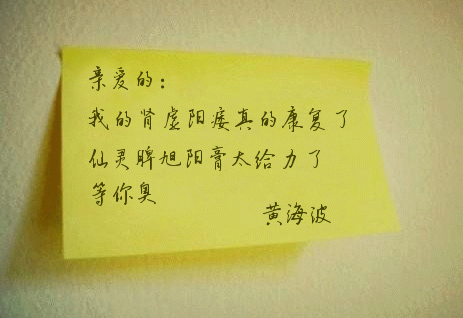 亲爱的：
我的肾虚阳痿真的康复了
仙灵脾旭阳膏太给力了
等你奥
黄海波